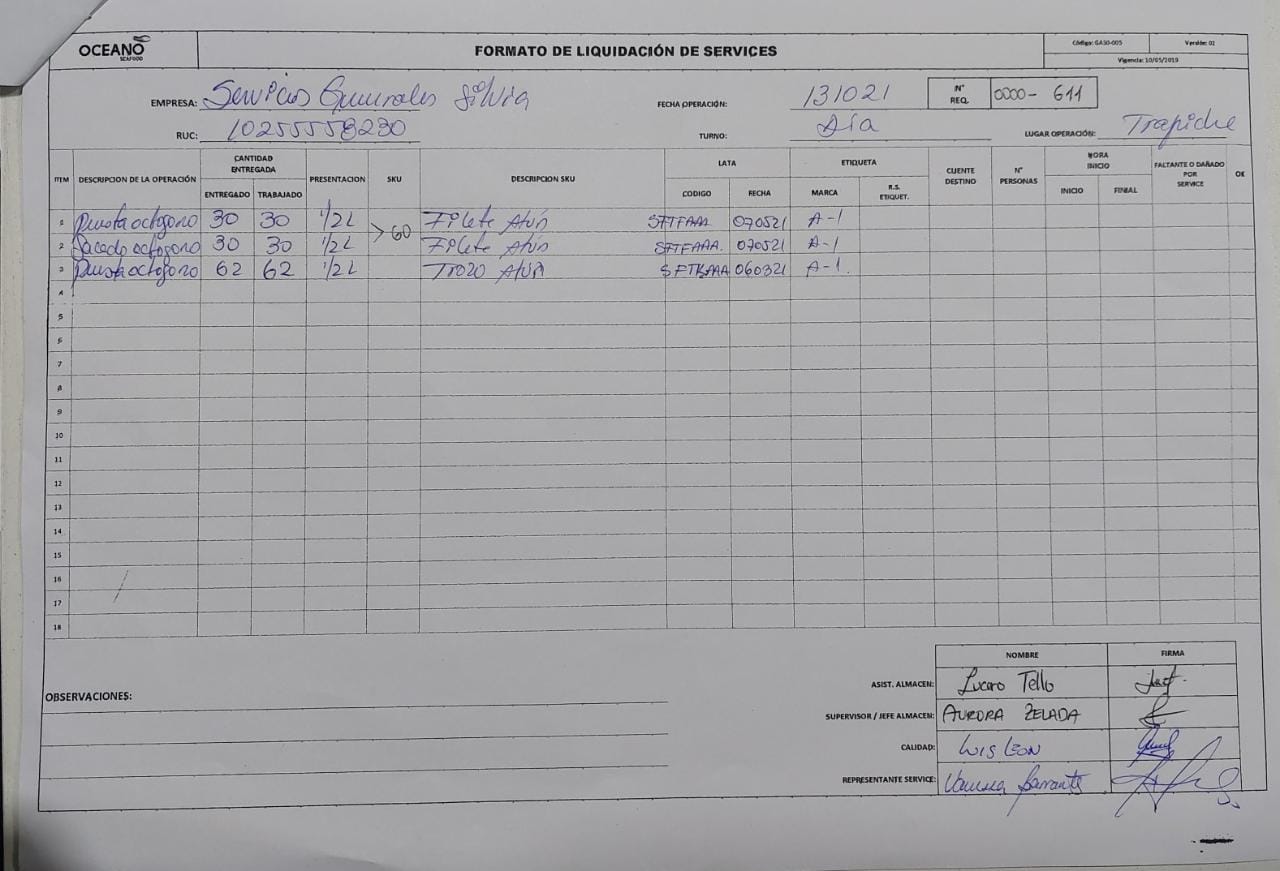 OCEANO
SEAFOOD
FORMATO DE LIQUIDACIÓN DE SERVICES
Código: GASO-005 Versión: 02
Vigencia: 10/05/2019
EMPRESA: Servicios Generales Silvia FECHA OPERACIÓN: 131021 N° REQ. 0000- 611
RUC: 10255558230 TURNO: Día LUGAR OPERACIÓN: Trapiche
ITEM DESCRIPCION DE LA OPERACIÓN CANTIDAD ENTREGADA PRESENTACION SKU DESCRIPCION SKU LATA ETIQUETA CLIENTE DESTINO N° PERSONAS HORA INICIO FALTANTE O DAÑADO POR SERVICE OK
ENTREGADO TRABAJADO CODIGO FECHA MARCA R.S. ETIQUET. INICIO FINIAL
1 Puesta octogono 30 30 1/2 L Filete Atún 070521 A-1
> 60
2 Sacado octogono 30 30 1/2 L Filete Atún 070521 A-1
3 Puesta octogono 62 62 1/2 L Trozo Atún 060321 A-1.
4
5
6
7
8
9
10
11
12
13
14
15
16
17
18
NOMBRE FIRMA
OBSERVACIONES:
ASIST. ALMACEN: Lucero Tello
SUPERVISOR / JEFE ALMACEN: AURORA ZELADA
CALIDAD: LUIS LEON
REPRESENTANTE SERVICE: Vanessa Barrantes